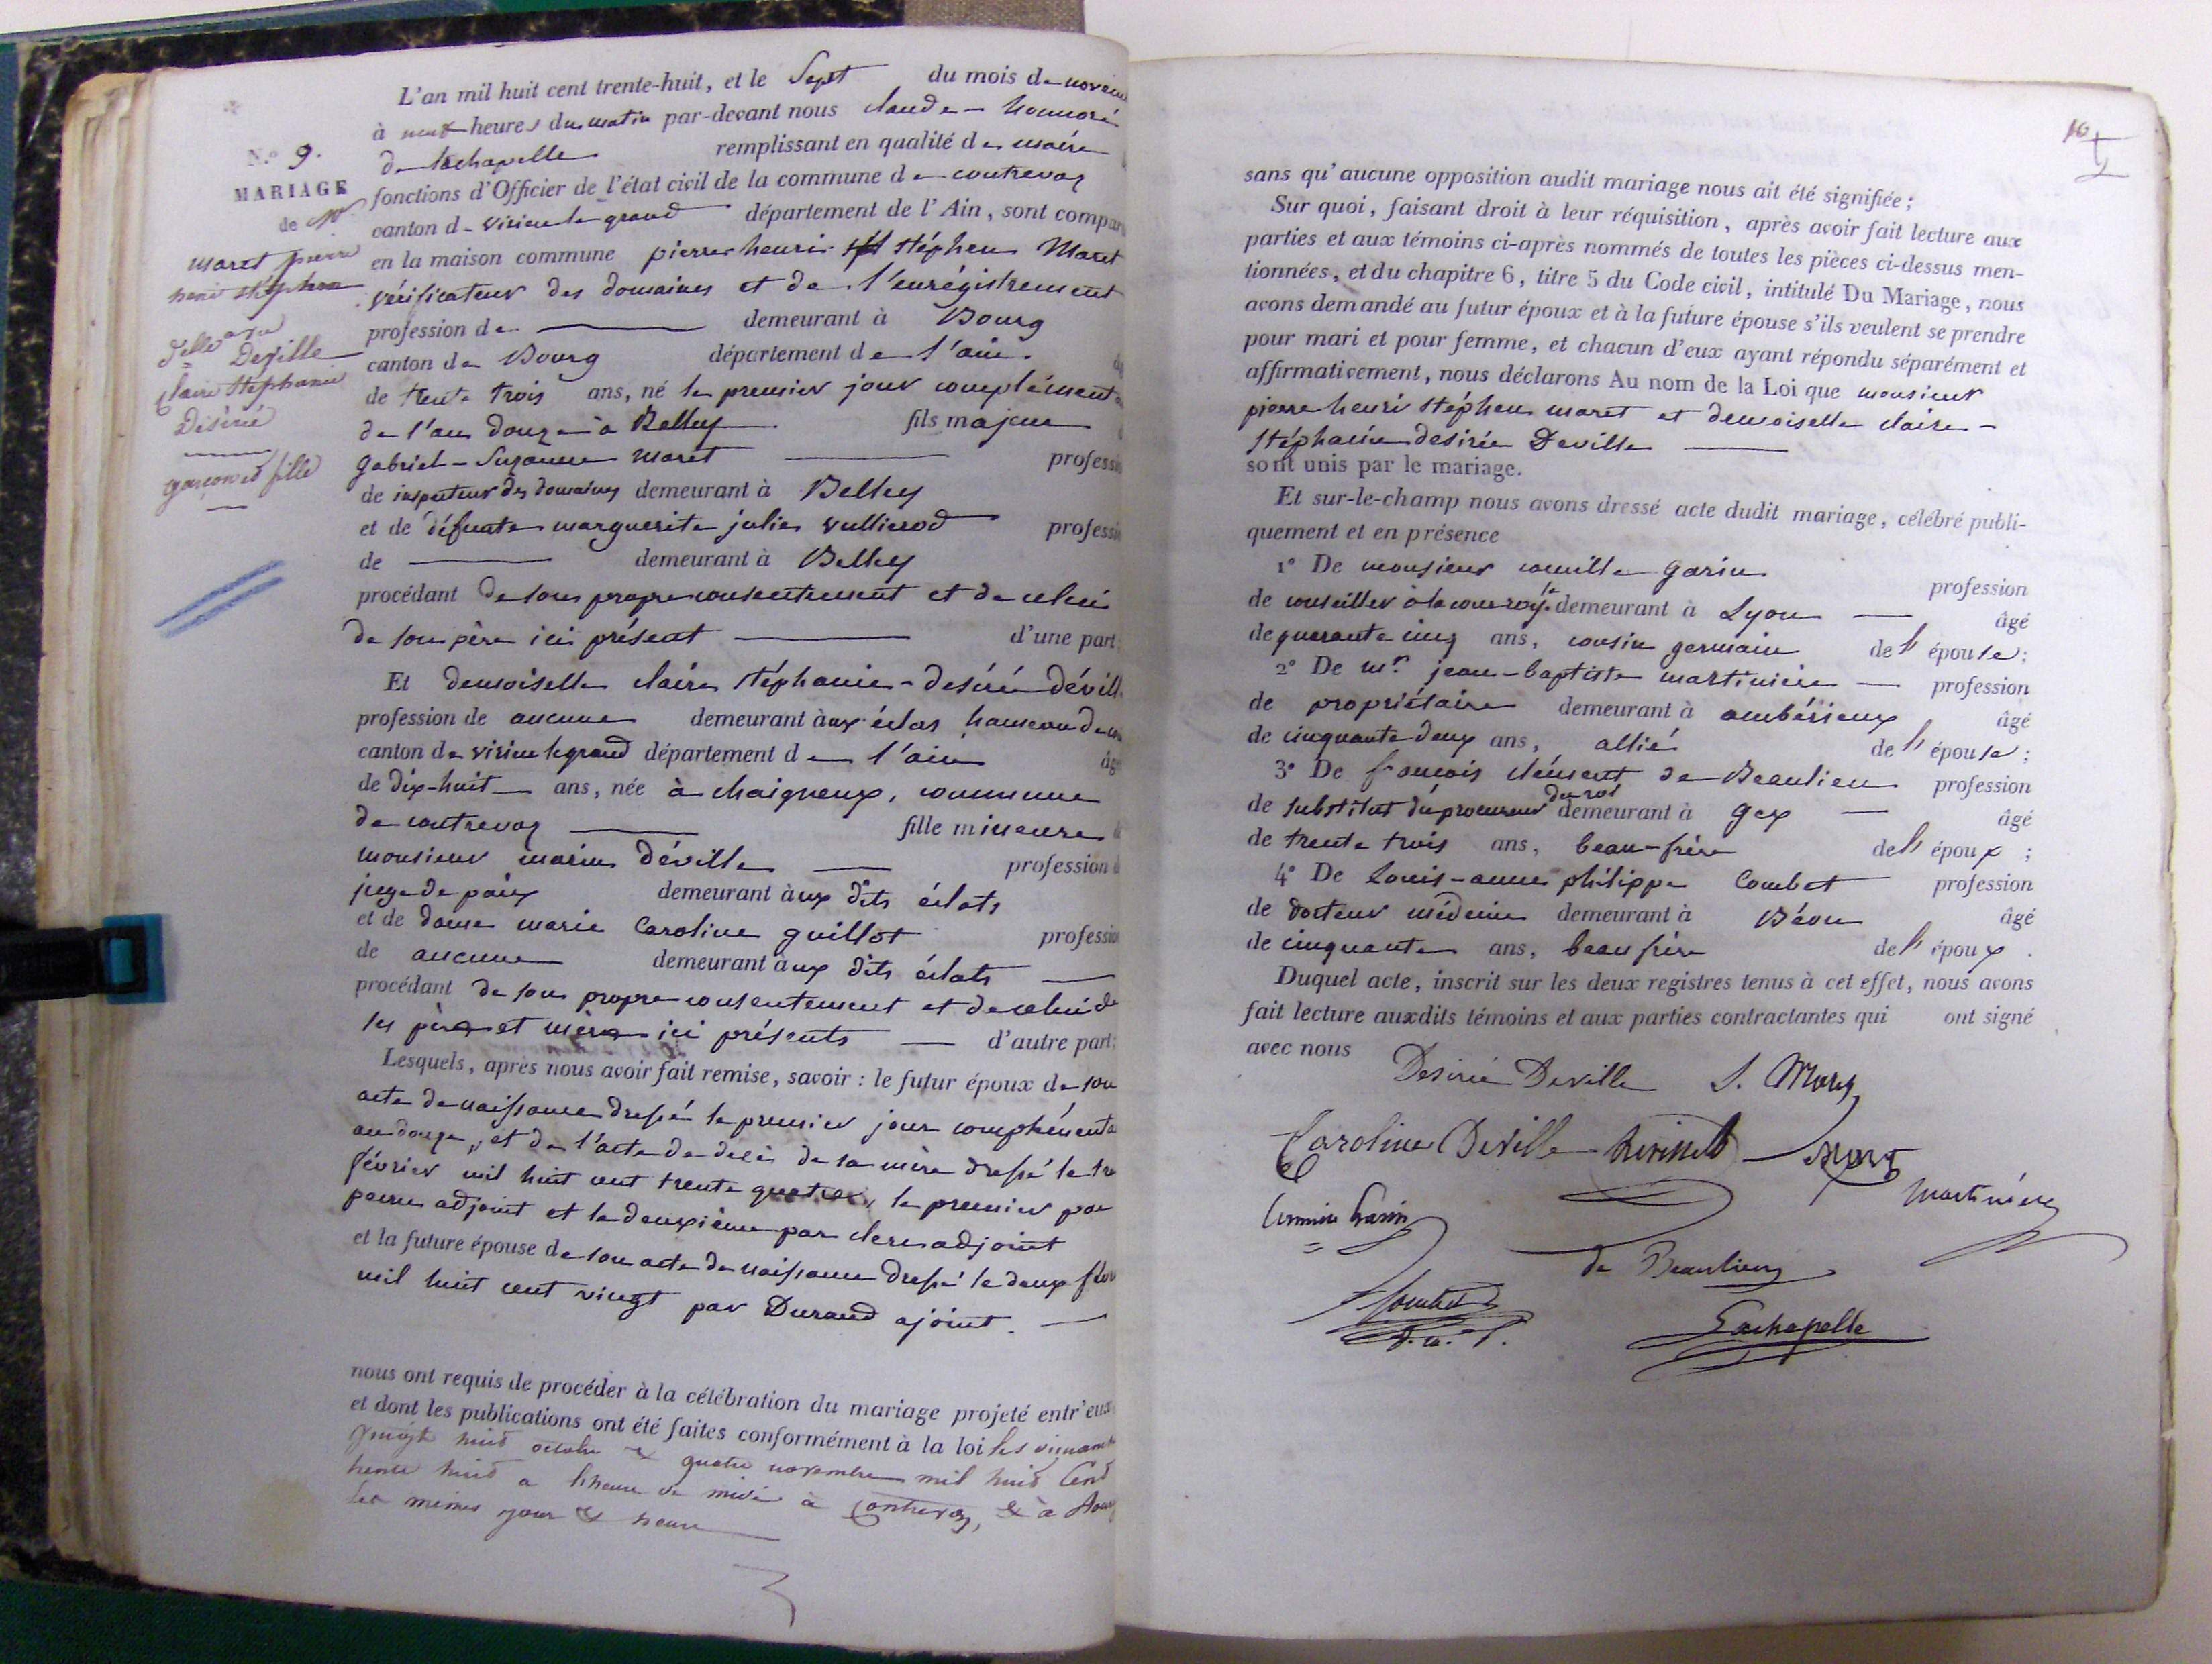 N.° 9.
MARIAGE
de Mr
maret pierre
henri stéphen
avec
Delle Deville
Claire Stephanie
Désirée
garçon et fille
L'an mil huit cent trente-huit, et le Sept du mois de novem
à neuf heures du matin par-devant nous claude-honnoré
de lachapelle remplissant en qualité de maire
fonctions d'Officier de l'état civil de la commune de contrevoz
canton de virieu le grand département de l'Ain, sont compar
en la maison commune pierre henri stéphen Maret
vérificateur des domaines et de l'enrégistrement
profession de demeurant à Bourg
canton de Bourg département de l'ain
de trente trois ans, né le premier jour complément
de l'an douze à Belley fils majeur
gabriel-Suzanne maret professi
de inspecteur des domaines demeurant à Belley
et de défunte marguerite julie vullierod professi
de demeurant à Belley
procédant de son propre consentement et de celui
de son père ici présent d'une part;
Et demoiselle claire stéphanie-desirée dévill
profession de aucune demeurant aux éclas hameau de
canton de virieu le grand département de l'ain âg
de dix-huit ans, née à chaigneux, commune
de contrevoz fille mineure
monsieur marin déville profession
juge de paix demeurant aux dits éclats
et de dame marie Caroline guillot professi
de aucune demeurant aux dits éclats
procédant de son propre consentement et de celui de
ses père et mère ici présents d'autre part;
Lesquels, après nous avoir fait remise, savoir : le futur époux de son
acte de naissance dressé le premier jour complémenta
an douze, et de l'acte de décès de sa mère dressé le tr
février mil huit cent trente quatre, le premier par
adjoint et le deuxième par clerc adjoint
et la future épouse de son acte de naissance dressé le deux
mil huit cent vingt par Durand ajoint.
nous ont requis de procéder à la célébration du mariage projeté entr'eux
et dont les publications ont été faites conformément à la loi les dimanch
vingt huit octobre & quatre novembre mil huit Cent
trente huit a lheure de midi à Contrevoz, & à Bourg
les mêmes jour & heure
10
sans qu'aucune opposition audit mariage nous ait été signifiée;
Sur quoi, faisant droit à leur réquisition, après avoir fait lecture aux
parties et aux témoins ci-après nommés de toutes les pièces ci-dessus men-
tionnées, et du chapitre 6, titre 5 du Code civil, intitulé Du Mariage, nous
avons demandé au futur époux et à la future épouse s'ils veulent se prendre
pour mari et pour femme, et chacun d'eux ayant répondu séparément et
affirmativement, nous déclarons Au nom de la Loi que monsieur
pierre henri stéphen maret et demoiselle claire-
stéphanie desirée Deville
sont unis par le mariage.
Et sur-le-champ nous avons dressé acte dudit mariage, célébré publi-
quement et en présence
1° De monsieur camille garin profession
de conseiller à la cour royle demeurant à Lyon âgé
de quarante cinq ans, cousin germain de l'épouse;
2° De mr. jean-baptiste martinière profession
de propriétaire demeurant à ambérieux âgé
de cinquante deux ans, allié de l'épouse;
3° De francois clément de Beaulieu profession
de substitut du procureur du roi demeurant à gex âgé
de trente trois ans, beau-frère de l'époux;
4° De Louis-anne philippe Combet profession
de docteur médecin demeurant à Béon âgé
de cinquante ans, beau frère de l'époux.
Duquel acte, inscrit sur les deux registres tenus à cet effet, nous avons
fait lecture auxdits témoins et aux parties contractantes qui ont signé
avec nous
Desirée Deville S. Maret
Caroline Deville Maret
martinière
Garin
de Beaulieu
Combet
d. m. Lachapelle